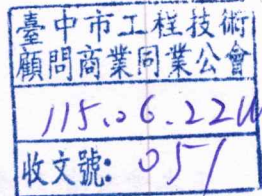 臺中市工程技術
顧問商業同業公會
115.06.22
收文號: 051